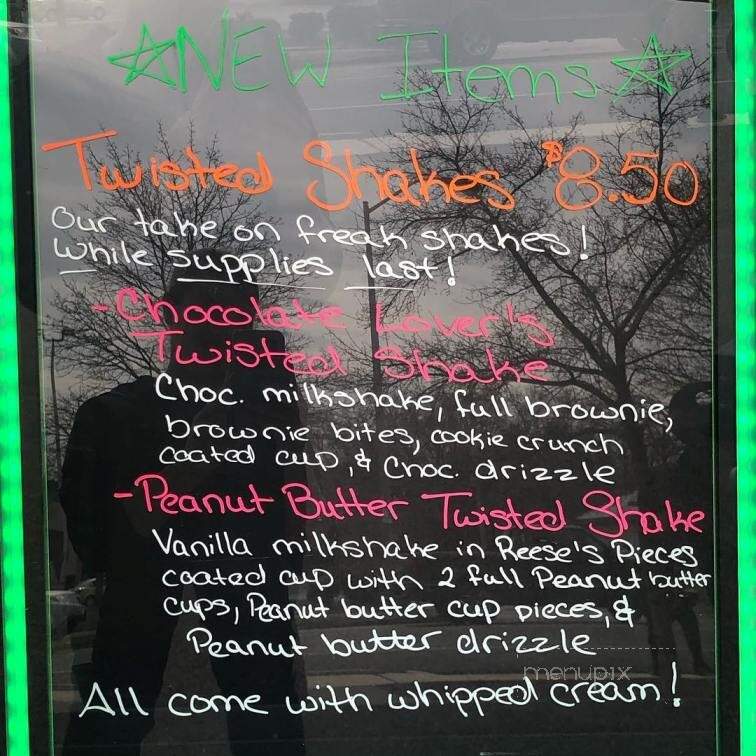 NEW Items
Twisted Shakes $8.50
Our take on freak shakes!
While supplies last!
-Chocolate Lover's
Twisted Shake
Choc. milkshake, full brownie,
brownie bites, cookie crunch
coated cup, & Choc. drizzle
-Peanut Butter Twisted Shake
Vanilla milkshake in Reese's Pieces
coated cup with 2 full Peanut butter
cups, Peanut butter cup pieces, &
Peanut butter drizzle
menupix
All come with whipped cream!